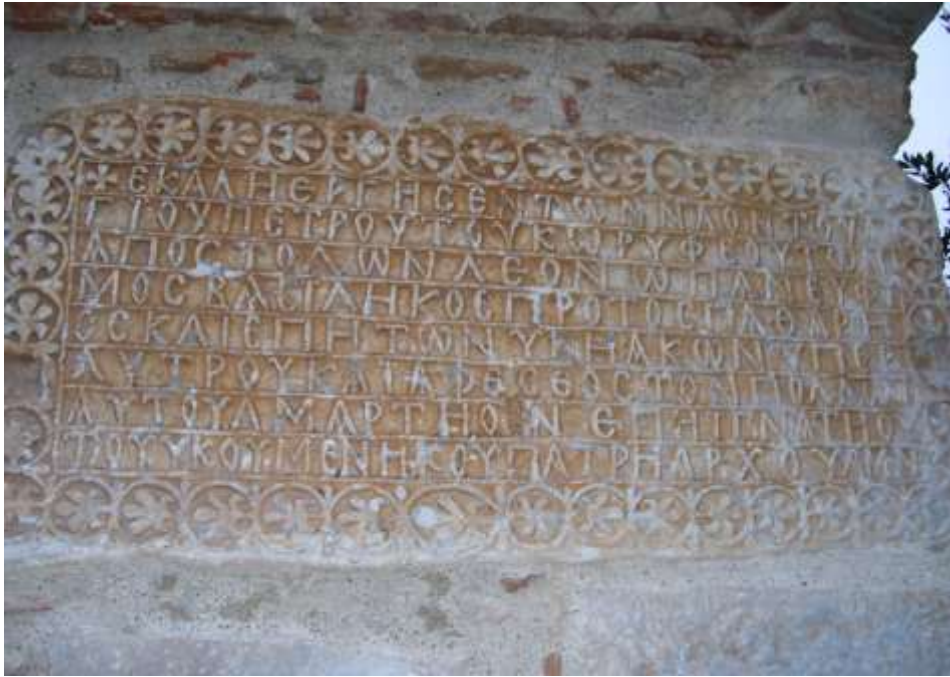 ✣ ΕΚΑΛΗΕΡΓΗCΕΝΤΩΝΝΑΟΝΤΟΥΑ
ΓΙΟΥΠΕΤΡΟΥΤΟΥΚΩΡΥΦΕΟΥΤΩΝ
ΑΠΟCΤΟΛΩΝΛΕΟΝΩΠΑΝΕΥΦΗ
ΜΟCΒΑCΙΛΗΚΟCΠΡΟΤΟCΠΑΘΑΡΗ
ΟCΚΑΙΕΠΗΤΩΝΥΚΗΑΚΩΝΥΠΕΡ
ΛΥΤΡΟΥΚΑΙΑΦΕCΕΟCΤΟΝΠΟΛΛΩΝ
ΑΥΤΟΥΑΜΑΡΤΗΟΝΕΠΗΙΓΝΑΤΗΟΥ
ΤΟΥΥΚΟΥΜΕΝΗΚΟΥΠΑΤΡΗΑΡΧΟΥΑΜΗΝ